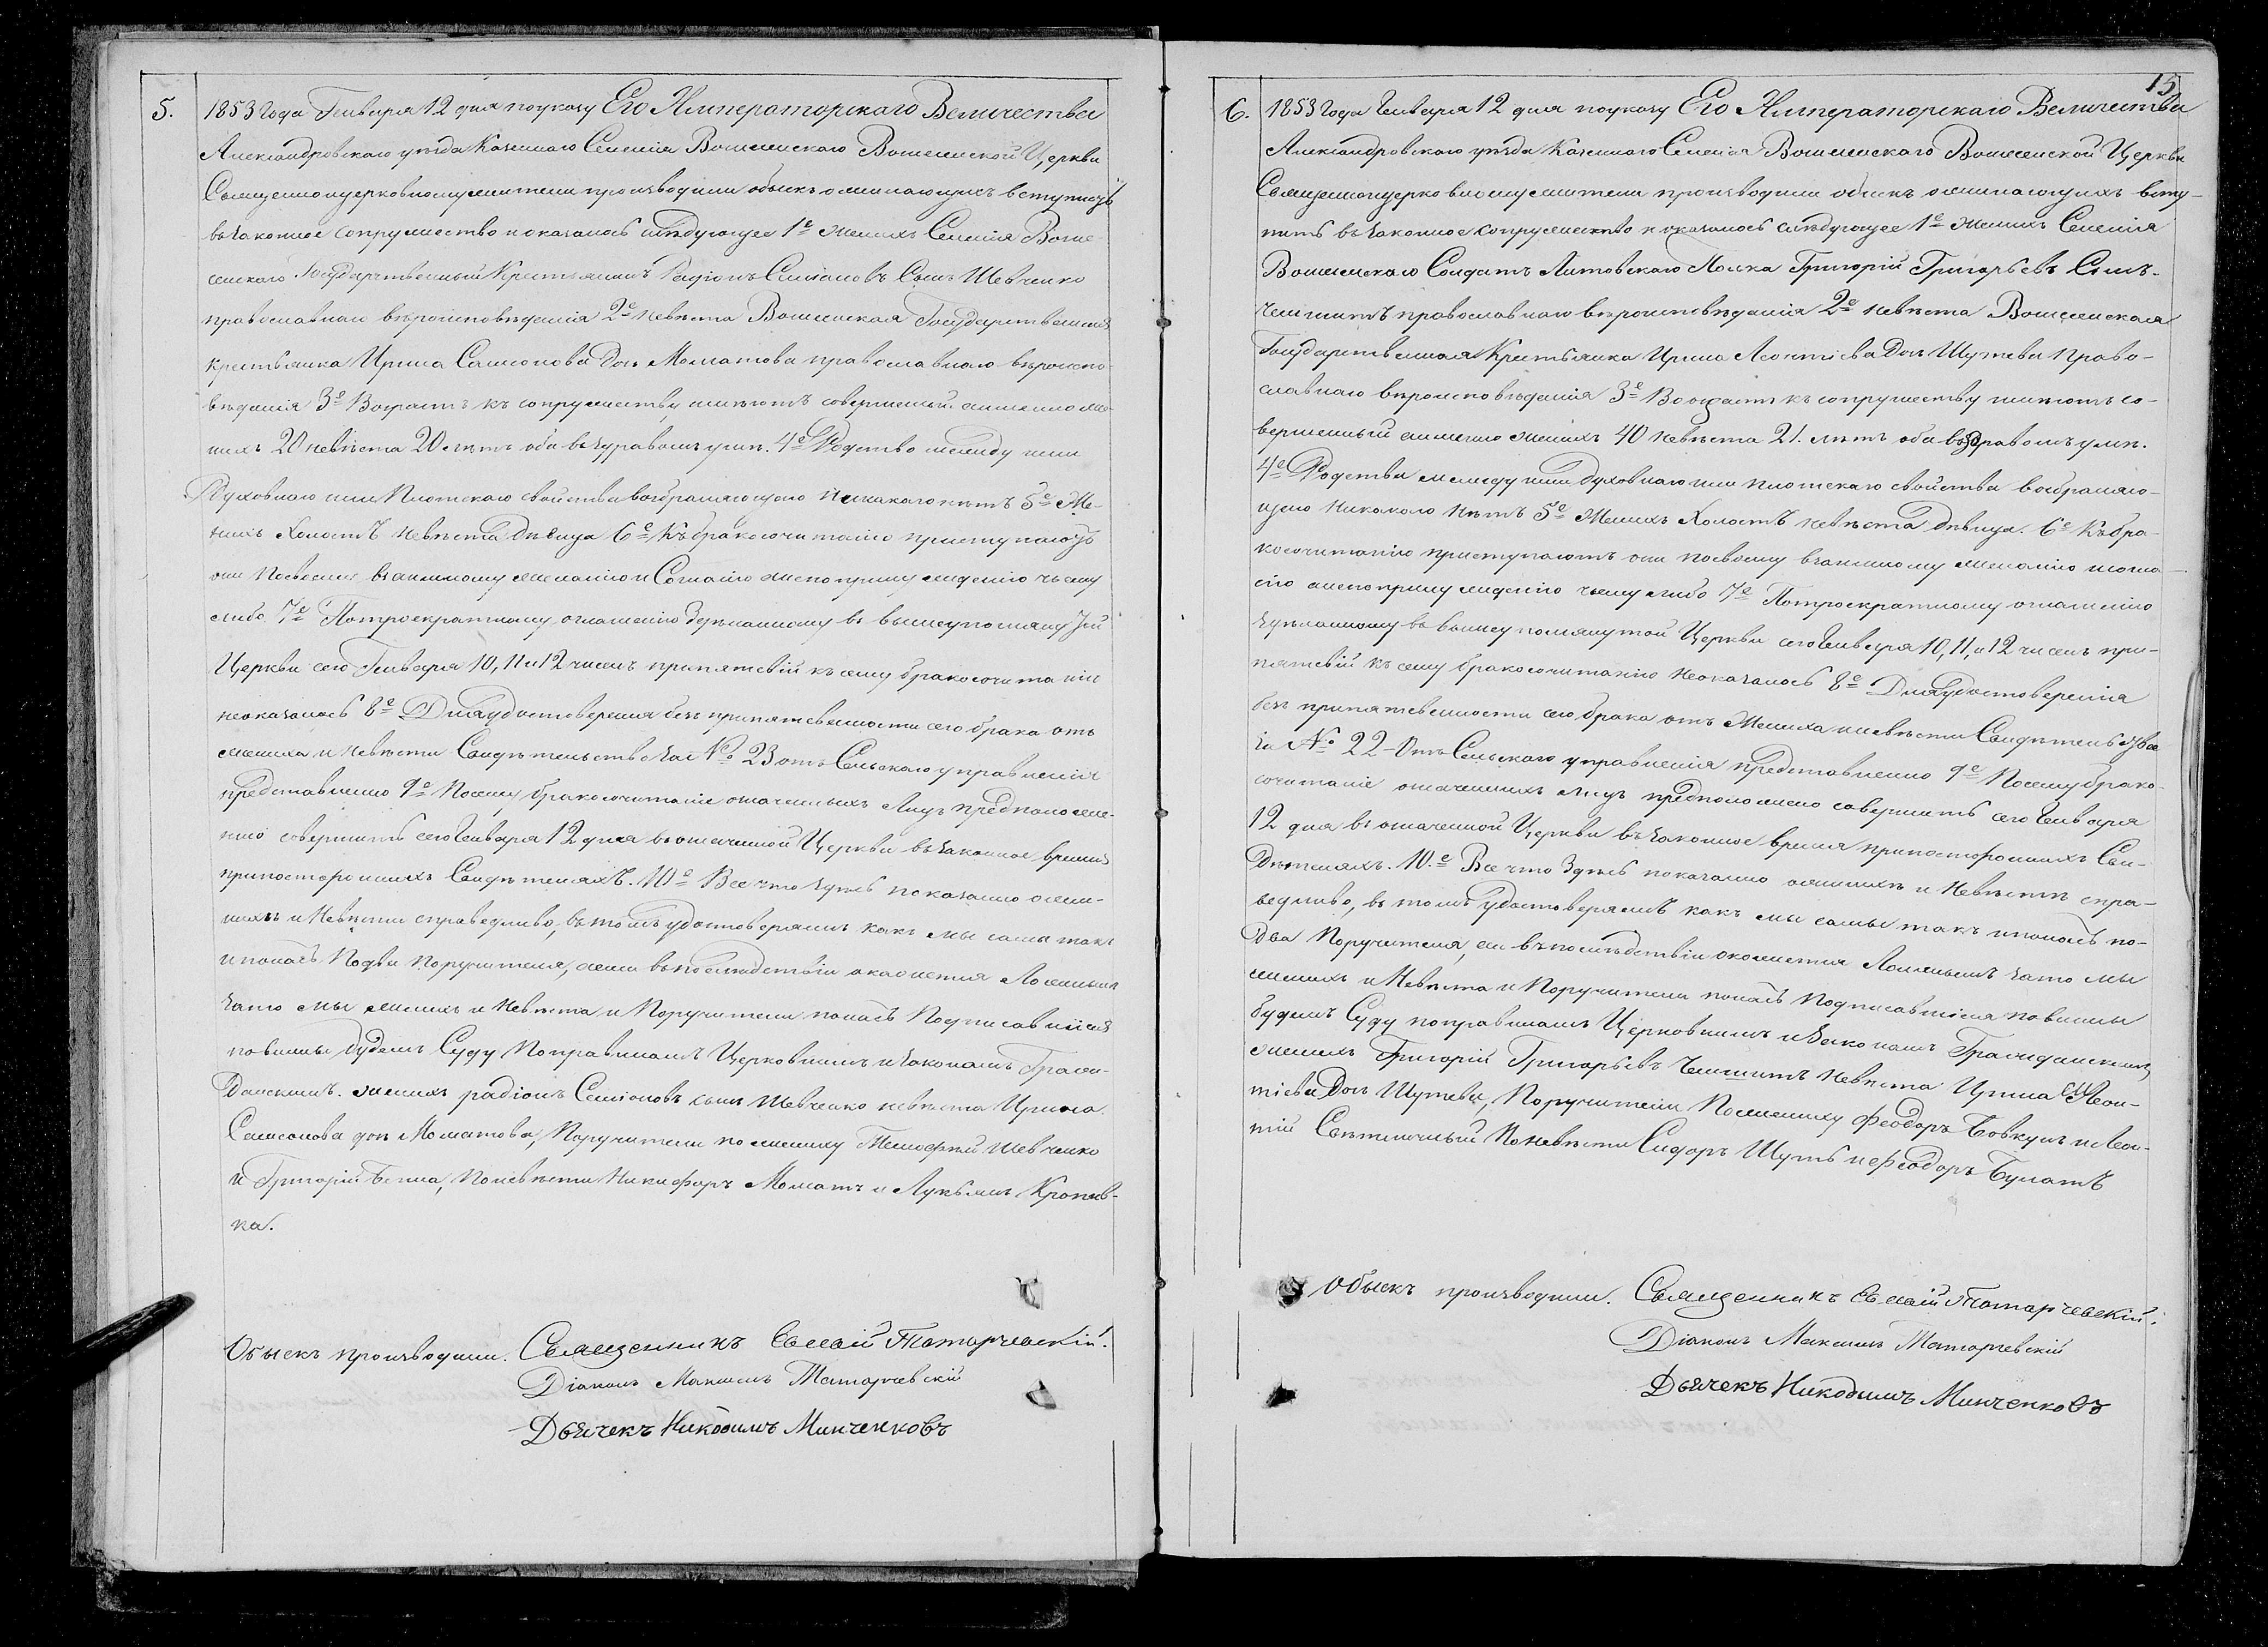 5.
1853 года Генваря 12 дня поуказу Его Императорскаго Величества
Александровскаго уезда Казеннаго Селенія Вошенскаго Вошенской Церкви
Священноцерковнослужители производили обыскъ о желающихъ вступить
възаконное сопружество и оказалось слѣдующее 1е женихъ Селенія Воше-
нскаго Государственный Крестьянинъ Радіонъ Семіоновъ Сынъ Шевченко
православнаго вѣроисповѣданія 2е невѣста Вошенская Государственная
крестьянка Ирина Самсонова Дочь Моматова православнаго вѣроиспо-
вѣданія 3е Возрастъ къ сопружеству имѣютъ совершенный аименно же-
нихъ 20 невѣста 20 лѣтъ оба въздравомъ умѣ. 4е Родство между ними
Духовнаго или Плотскаго свойства возбраняющаго Никакого нѣтъ 5е Же-
нихъ Холостъ невѣста Дѣвица 6е Къбракосочитанію приступаютъ
они Посвоему взаимному желанію и Согласію анепопринужденію чьему
либо 7е Потроекратному оглашенію Здѣланному въ вышеупомянутой
Церкви сего Генваря 10, 11 и 12 чиселъ препятсвій къ сему бракосочитанію
неоказалось 8е Дляудостоверенія безъ припятсвенности сего брака отъ
жениха и невѣсты Свидѣтельство за № 23 отъ Сельскаго управленія
представленно 9е Посему бракосочитаніе означенныхъ Лицъ предположен-
но совершить сего Генваря 12 дня въозначенной Церкви възаконное время
припостороннихъ Свидѣтеляхъ. 10е Все что здѣсь показанно ожени-
нихѣ и Невѣсти справедливо, въ томъ удостоверяемъ какъ мы самы такъ
ипонасъ Подва Поручителя, ежели въпослѣдствіи окажется Ложнымъ
зато мы женихъ и Невѣста и Поручители понасъ Подписавшіися
повинны будемъ Суду Поправиламъ Церковнымъ изаконамъ Граж-
Данскимъ. женихъ радіонъ Семіоновъ сынъ Шевченко невѣста Ирина
Самсонова доч Моматова, Поручители по жениху Тимофей Шевченко
и Григорій Бепла, Поневѣсти Никифоръ Моматъ и Лукьянъ Кропив-
ка.
Обыскъ производили. Священникъ Евмѣй Татарчевскій.
Діаконъ Максимъ Татарчевскій
Дьячекъ Никодимъ Минченковъ
15
6.
1853 Года Генваря 12 дня поуказу Его Императорскаго Величества
Александровскаго уезда Казеннаго Селенія Вошенскаго Вошенской Церкви
Священноцерковнослужители производили обыскъ ожелающихъ всту-
пить възаконное сопружество и оказалось слѣдующее 1е Женихъ Селенія
Вошенскаго Солдатъ Литовскаго Полка Григорій Григорьевъ Сынъ
православнаго вѣроисповѣданія 2е невѣста Вошенская
Государственная Крестьянка Ирина Леонтіева Доч Шутева Право-
славнаго вѣроисповѣданія 3е Возрастъ къ сопружеству имѣютъ со-
вершенный аименно женихъ 40 невѣста 21. лѣтъ оба въздравомъ умѣ.
4е Родства между ними духовнаго или плотскаго свойства возбраняю-
щаго Никокого Нѣтъ 5е Женихъ Холостъ невѣста Дѣвица. 6е Къбра-
косочитанію приступаютъ они посвоему взаимному желанію исогла-
сію анепопринужденію чьему либо 7е Потроекратному оглашенію
Здѣланному въ вышеупомянутой Церкви сего Генваря 10, 11, и 12 чиселъ при-
пятсвій къ сему бракосочитанію неоказалось 8е Дляудостоверенія
безъ припятсвенности сего брака отъ Жениха иневѣсти Свидѣтельство
за № 22-Отъ Сельскаго управленія представленно 9е Посему брако-
сочитаніе означенныхъ лицъ предположено совершить сего Генваря
12 дня въозначенной Церкви възаконное время припостороннихъ Сви-
Дѣтеляхъ. 10.е Все что Здѣсь показанно оженихѣ и Невѣсти спра-
ведливо, въ томъ Удостоверяемъ какъ мы самы такъ ипонасъ по-
Два Поручителя, аи въпослѣдствіи окажется Ложнымъ зато мы
женихъ и Невѣста и Поручители понасъ Подписавшіися повинны
будемъ Суду поправиламъ Церковнымъ изаконамъ Гражданскимъ,
женихъ Григорій Григорьевъ невѣста Ирина Леон-
тіева Доч Шутева, Поручители Пожениху Феодоръ Бовкунъ иЛеон-
тій Свѣтличный Поневѣсти Сидоръ Шуть иФеодоръ Булатъ
Обыскъ производили. Священникъ Евмѣй Татарчевскій.
Діаконъ Максимъ Татарчевскій
Дьячекъ Никодимъ Минченковъ